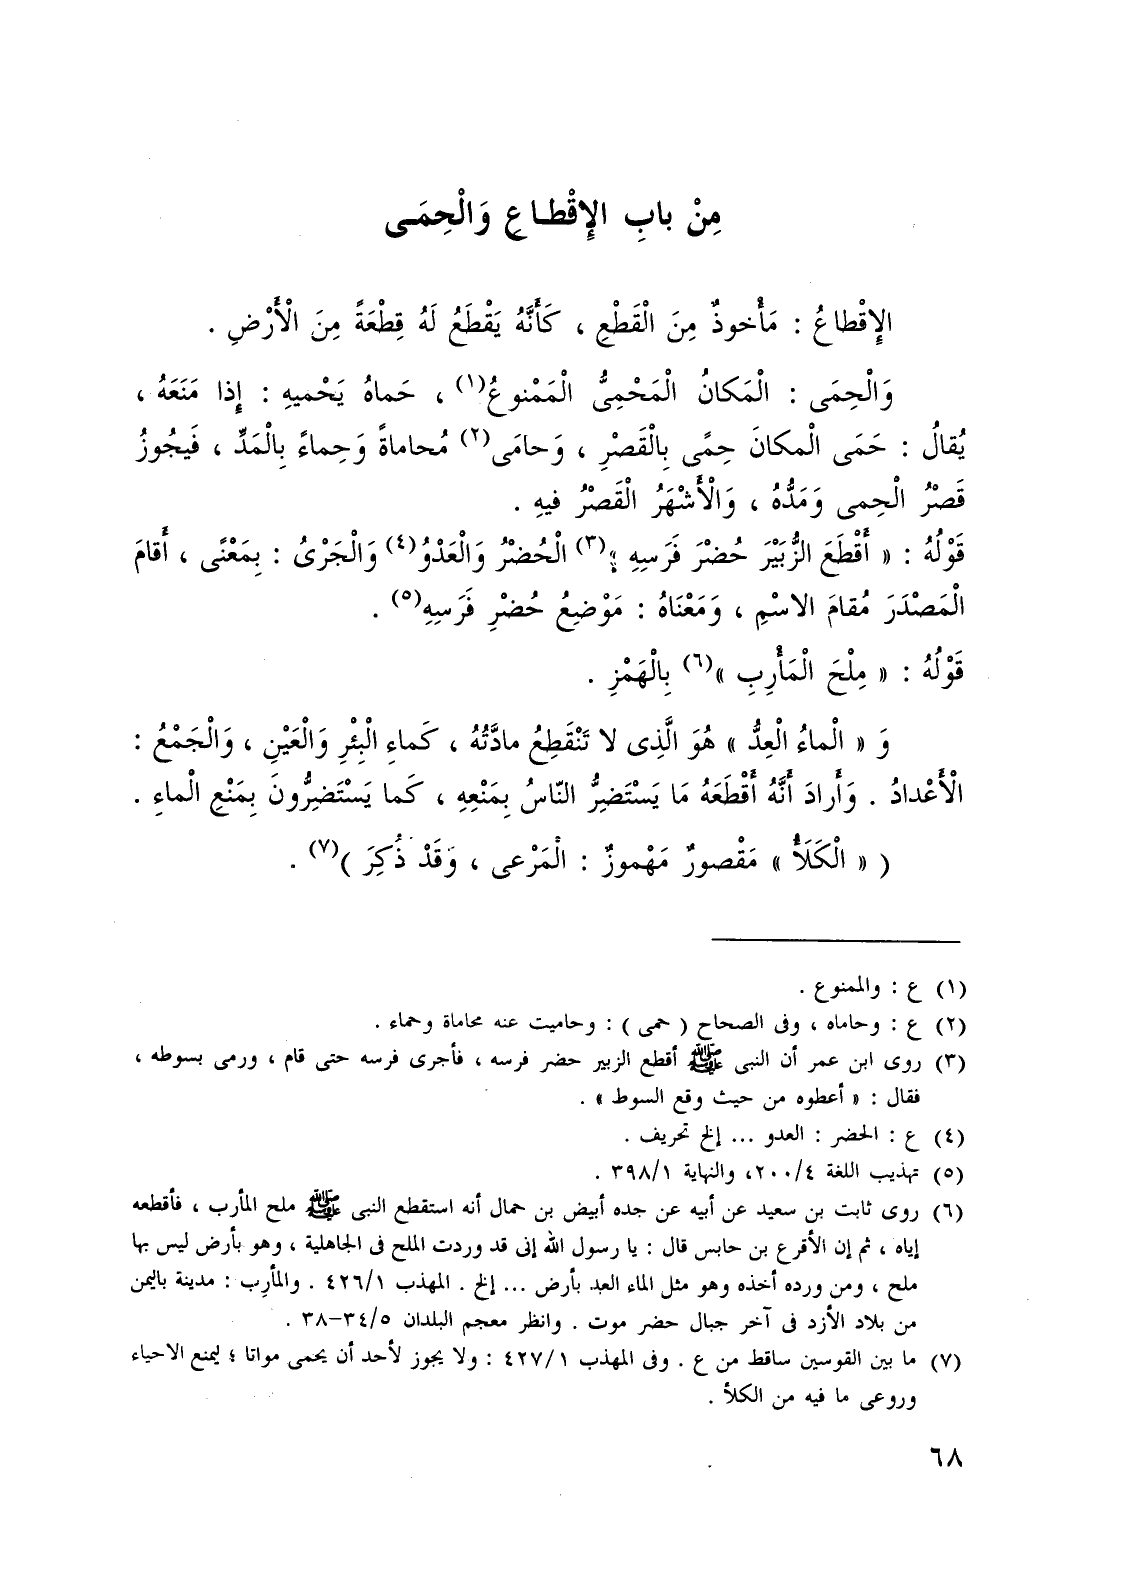 مِنْ بابِ الإِقْطـاعِ وَالْحِمَـى
الإِقْطاعُ : مَأْخوذٌ مِنَ الْقَطْعِ ، كَأَنَّهُ يَقْطَعُ لَهُ قِطْعَةً مِنَ الْأَرْضِ .
وَالْحِمَى : الْمَكانُ الْمَحْمِىُّ الْمَمْنوعُ(١) ، حَماهُ يَحْميهِ : إِذا مَنَعَهُ ،
يُقالُ : حَمَى الْمكانَ حِمًى بِالْقَصْرِ ، وَحامَى(٢) مُحاماةً وَحِماءً بِالْمَدِّ ، فَيجُوزُ
قَصْرُ الْحِمى وَمَدُّهُ ، وَالْأَشْهَرُ الْقَصْرُ فيهِ .
قَوْلُهُ : « أَقْطَعَ الزُّبَيْرَ حُضْرَ فَرَسِهِ »(٣) الْحُضْرُ وَالْعَدْوُ(٤) وَالْجَرْىُ : بِمَعْنًى ، أَقامَ
الْمَصْدَرَ مُقامَ الاسْمِ ، وَمَعْنَاهُ : مَوْضِعُ حُضْرِ فَرَسِهِ(٥) .
قَوْلُهُ : « مِلْحَ الْمَأْرِبِ »(٦) بِالْهَمْزِ .
وَ « الْماءُ الْعِدُّ » هُوَ الَّذِى لا تَنْقَطِعُ مادَّتُهُ ، كَماءِ الْبِئْرِ وَالْعَيْنِ ، وَالْجَمْعُ :
الْأَعْدادُ . وَأَرادَ أَنَّهُ أَقْطَعَهُ مَا يَسْتَضِرُّ النّاسُ بِمَنْعِهِ ، كَما يَسْتَضِرُّونَ بِمَنْعِ الْماءِ .
( « الْكَلَأُ » مَقْصورٌ مَهْموزٌ : الْمَرْعى ، وَقَدْ ذُكِرَ )(٧) .
(١) ع : والممنوع .
(٢) ع : وحاماه ، وفى الصحاح ( حمى ) : وحاميت عنه محاماة وحماء .
(٣) روى ابن عمر أن النبى ﷺ أقطع الزبير حضر فرسه ، فأجرى فرسه حتى قام ، ورمى بسوطه ،
فقال : « أعطوه من حيث وقع السوط » .
(٤) ع : الحضر : العدو ... إلخ تحريف .
(٥) تهذيب اللغة ٤/‏٢٠٠، والنهاية ١/‏٣٩٨ .
(٦) روى ثابت بن سعيد عن أبيه عن جده أبيض بن حمال أنه استقطع النبى ﷺ ملح المأرب ، فأقطعه
إياه ، ثم إن الأقرع بن حابس قال : يا رسول الله إنى قد وردت الملح فى الجاهلية ، وهو بأرض ليس بها
ملح ، ومن ورده أخذه وهو مثل الماء العد بأرض ... إلخ . المهذب ١/‏٤٢٦ . والمأرِب : مدينة باليمن
من بلاد الأزد فى آخر جبال حضر موت . وانظر معجم البلدان ٥/‏٣٤-٣٨ .
(٧) ما بين القوسين ساقط من ع . وفى المهذب ١/‏٤٢٧ : ولا يجوز لأحد أن يحمى مواتا ؛ ليمنع الاحياء
وروعى ما فيه من الكلأ .
٦٨